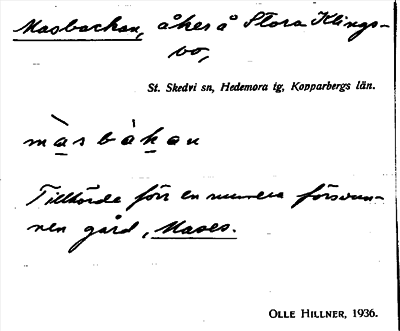 Masbackan, åker å Stora Klings-
bo,
St. Skedvi sn, Hedemora tg, Kopparbergs län.
màsbàkan
Tillhörde förr en numera försvun-
nen gård, Mases.
OLLE HILLNER, 1936.